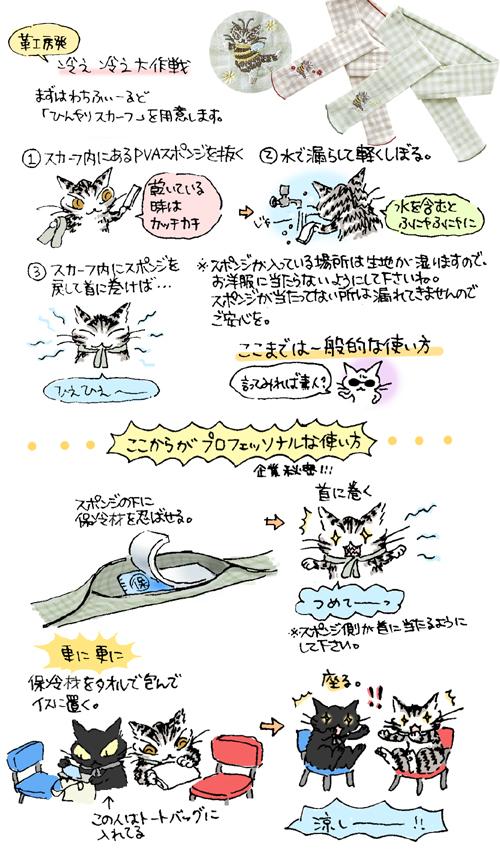 革工房発
冷え冷え大作戦
まずはわちふぃーるど
「ひんやりスカーフ」を用意します。
① スカーフ内にあるPVAスポンジを抜く
乾いている
時は
カッチカチ
② 水で漏らして軽くしぼる。
じゃー
水を含むと
ふにゃふにゃに
③ スカーフ内にスポンジを
戻して首に巻けば…
ひえひえ〜
※スポンジが入っている場所は生地が湿りますので、
お洋服に当たらないようにして下さいね。
スポンジが当たってない所は漏れてきませんので
ご安心を。
ここまでは一般的な使い方
言ってみれば素人?
ここからがプロフェッソナルな使い方
企業秘密!!!
スポンジの下に
保冷材を忍ばせる。
保
首に巻く
つめてーーっ
※スポンジ側が首に当たるように
して下さい。
更に更に
保冷材をタオルで包んで
イスに置く。
この人はトートバッグに
入れてる
座る。
!!
涼しーーー!!